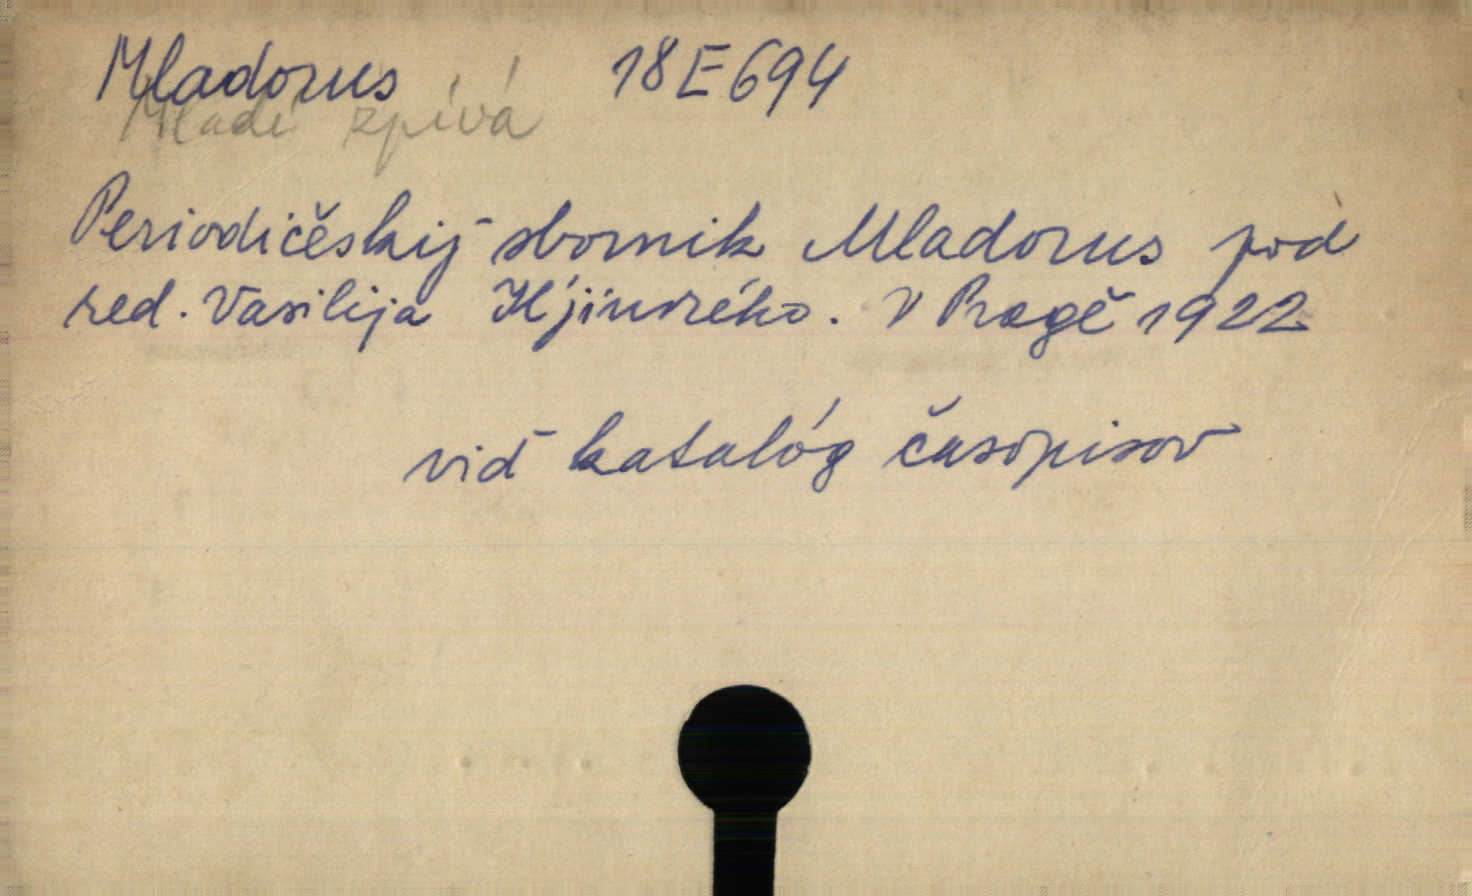 Mladorus 18E694
Mladí zpívá
Periodičěskij sbornik Mladorus pod
red. Vasilija
V Pragě 1922
viď katalóg časopisov